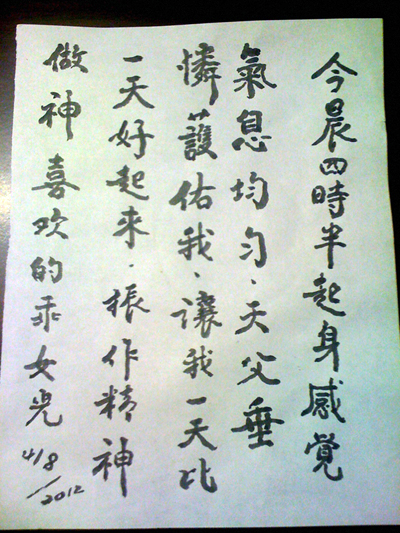 今晨四時半起身感覚
氣息均匀、天父垂
憐護佑我、讓我一天比
一天好起来、振作精神
做神喜欢的乖女児
4/8/2012